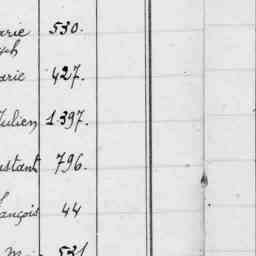 arie 530.
ph
arie 427.
Julien 1397.
nstant 796.
ançois 44
M 531